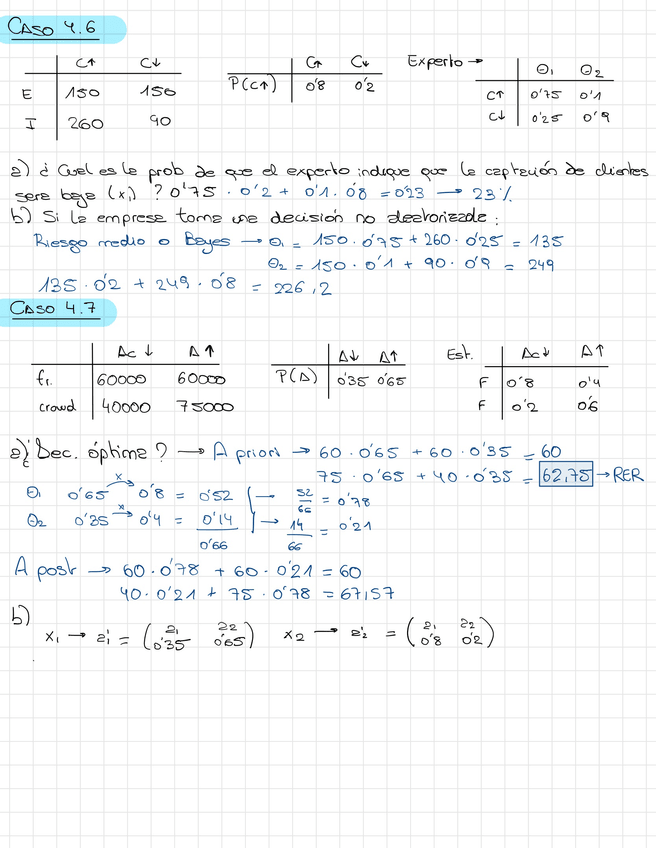 CASO 4.6
C↑ C↓
E 150 150
I 260 90
C↑ C↓
P(C↑) 0'8 0'2
Experto →
Θ1 Θ2
C↑ 0'75 0'1
C↓ 0'25 0'9
a) ¿Cual es la prob de que el experto indique que la captación de clientes
sera baja (x1)? 0'75 · 0'2 + 0'1 · 0'8 = 0'23 → 23%
b) Si la empresa toma una decisión no aleatorizada:
Riesgo medio o Bayes → Θ1 = 150 · 0'75 + 260 · 0'25 = 135
Θ2 = 150 · 0'1 + 90 · 0'9 = 249
135 · 0'2 + 249 · 0'8 = 226,2
CASO 4.7
Δc ↓ Δ ↑
fr. 60000 60000
crowd 40000 75000
Δ↓ Δ↑
P(Δ) 0'35 0'65
Est.
Δc↓ Δ↑
F 0'8 0'4
F 0'2 0'6
a) ¿Dec. óptima? → A priori → 60 · 0'65 + 60 · 0'35 = 60
75 · 0'65 + 40 · 0'35 = 62,75 → RER
Θ1 0'65 x→ 0'8 = 0'52 → 52/66 = 0'78
Θ2 0'35 x→ 0'4 = 0'14 → 14/66 = 0'21
0'66
A post → 60 · 0'78 + 60 · 0'21 = 60
40 · 0'21 + 75 · 0'78 = 67,57
b)
x1 → a'1 = (a1 a2 0'35 0'65) x2 → a'2 = (a1 a2 0'8 0'2)